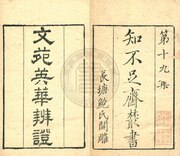 第十九集
知不足齋叢書
長塘鮑氏開雕
文苑英華辨證